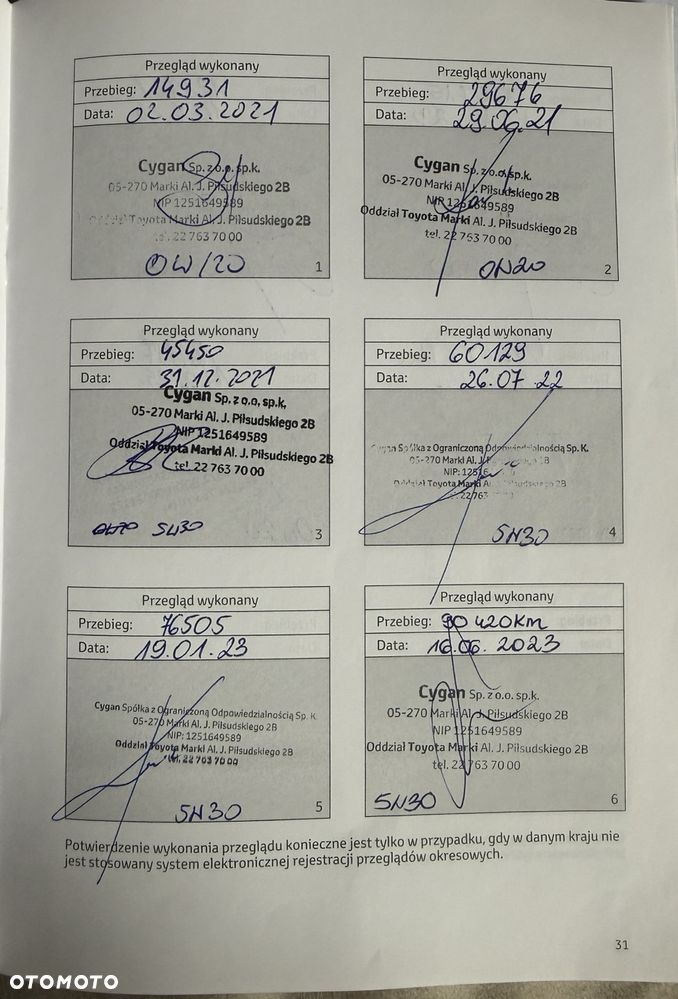 Przegląd wykonany
Przebieg: 14931
Data: 02.03.2021
Cygan Sp. z o.o. sp.k.
05-270 Marki Al. J. Piłsudskiego 2B
NIP 1251649589
Oddział Toyota Marki Al. J. Piłsudskiego 2B
tel. 22 763 70 00
0W/20
1
Przegląd wykonany
Przebieg: 29676
Data: 29.06.21
Cygan Sp. z o.o. sp.k.
05-270 Marki Al. J. Piłsudskiego 2B
NIP 1251649589
Oddział Toyota Marki Al. J. Piłsudskiego 2B
tel. 22 763 70 00
0W20
2
Przegląd wykonany
Przebieg: 45450
Data: 31.12.2021
Cygan Sp. z o.o. sp.k.
05-270 Marki Al. J. Piłsudskiego 2B
NIP 1251649589
Oddział Toyota Marki Al. J. Piłsudskiego 2B
tel. 22 763 70 00
5W30
3
Przegląd wykonany
Przebieg: 60129
Data: 26.07 22
Cygan Spółka z Ograniczoną Odpowiedzialnością Sp. K.
05-270 Marki Al. J. 2B
NIP:
Oddział Toyota Marki Al. J. Piłsudskiego 2B
22 763
5W30
4
Przegląd wykonany
Przebieg: 76505
Data: 19.01.23
Cygan Spółka z Ograniczoną Odpowiedzialnością Sp. K
05-270 Marki Al. J. Piłsudskiego 2B
NIP: 1251649589
Oddział Toyota Marki Al. J. Piłsudskiego 2B
tel. 22 763 70 00
5W30
5
Przegląd wykonany
Przebieg: 90 420km
Data: 16.06. 2023
Cygan Sp. z o.o. sp.k.
05-270 Marki Al. J. Piłsudskiego 2B
NIP 1251649589
Oddział Toyota Marki Al. J. Piłsudskiego 2B
tel. 22 763 70 00
5W30
6
Potwierdzenie wykonania przeglądu konieczne jest tylko w przypadku, gdy w danym kraju nie
jest stosowany system elektronicznej rejestracji przeglądów okresowych.
31
OTOMOTO